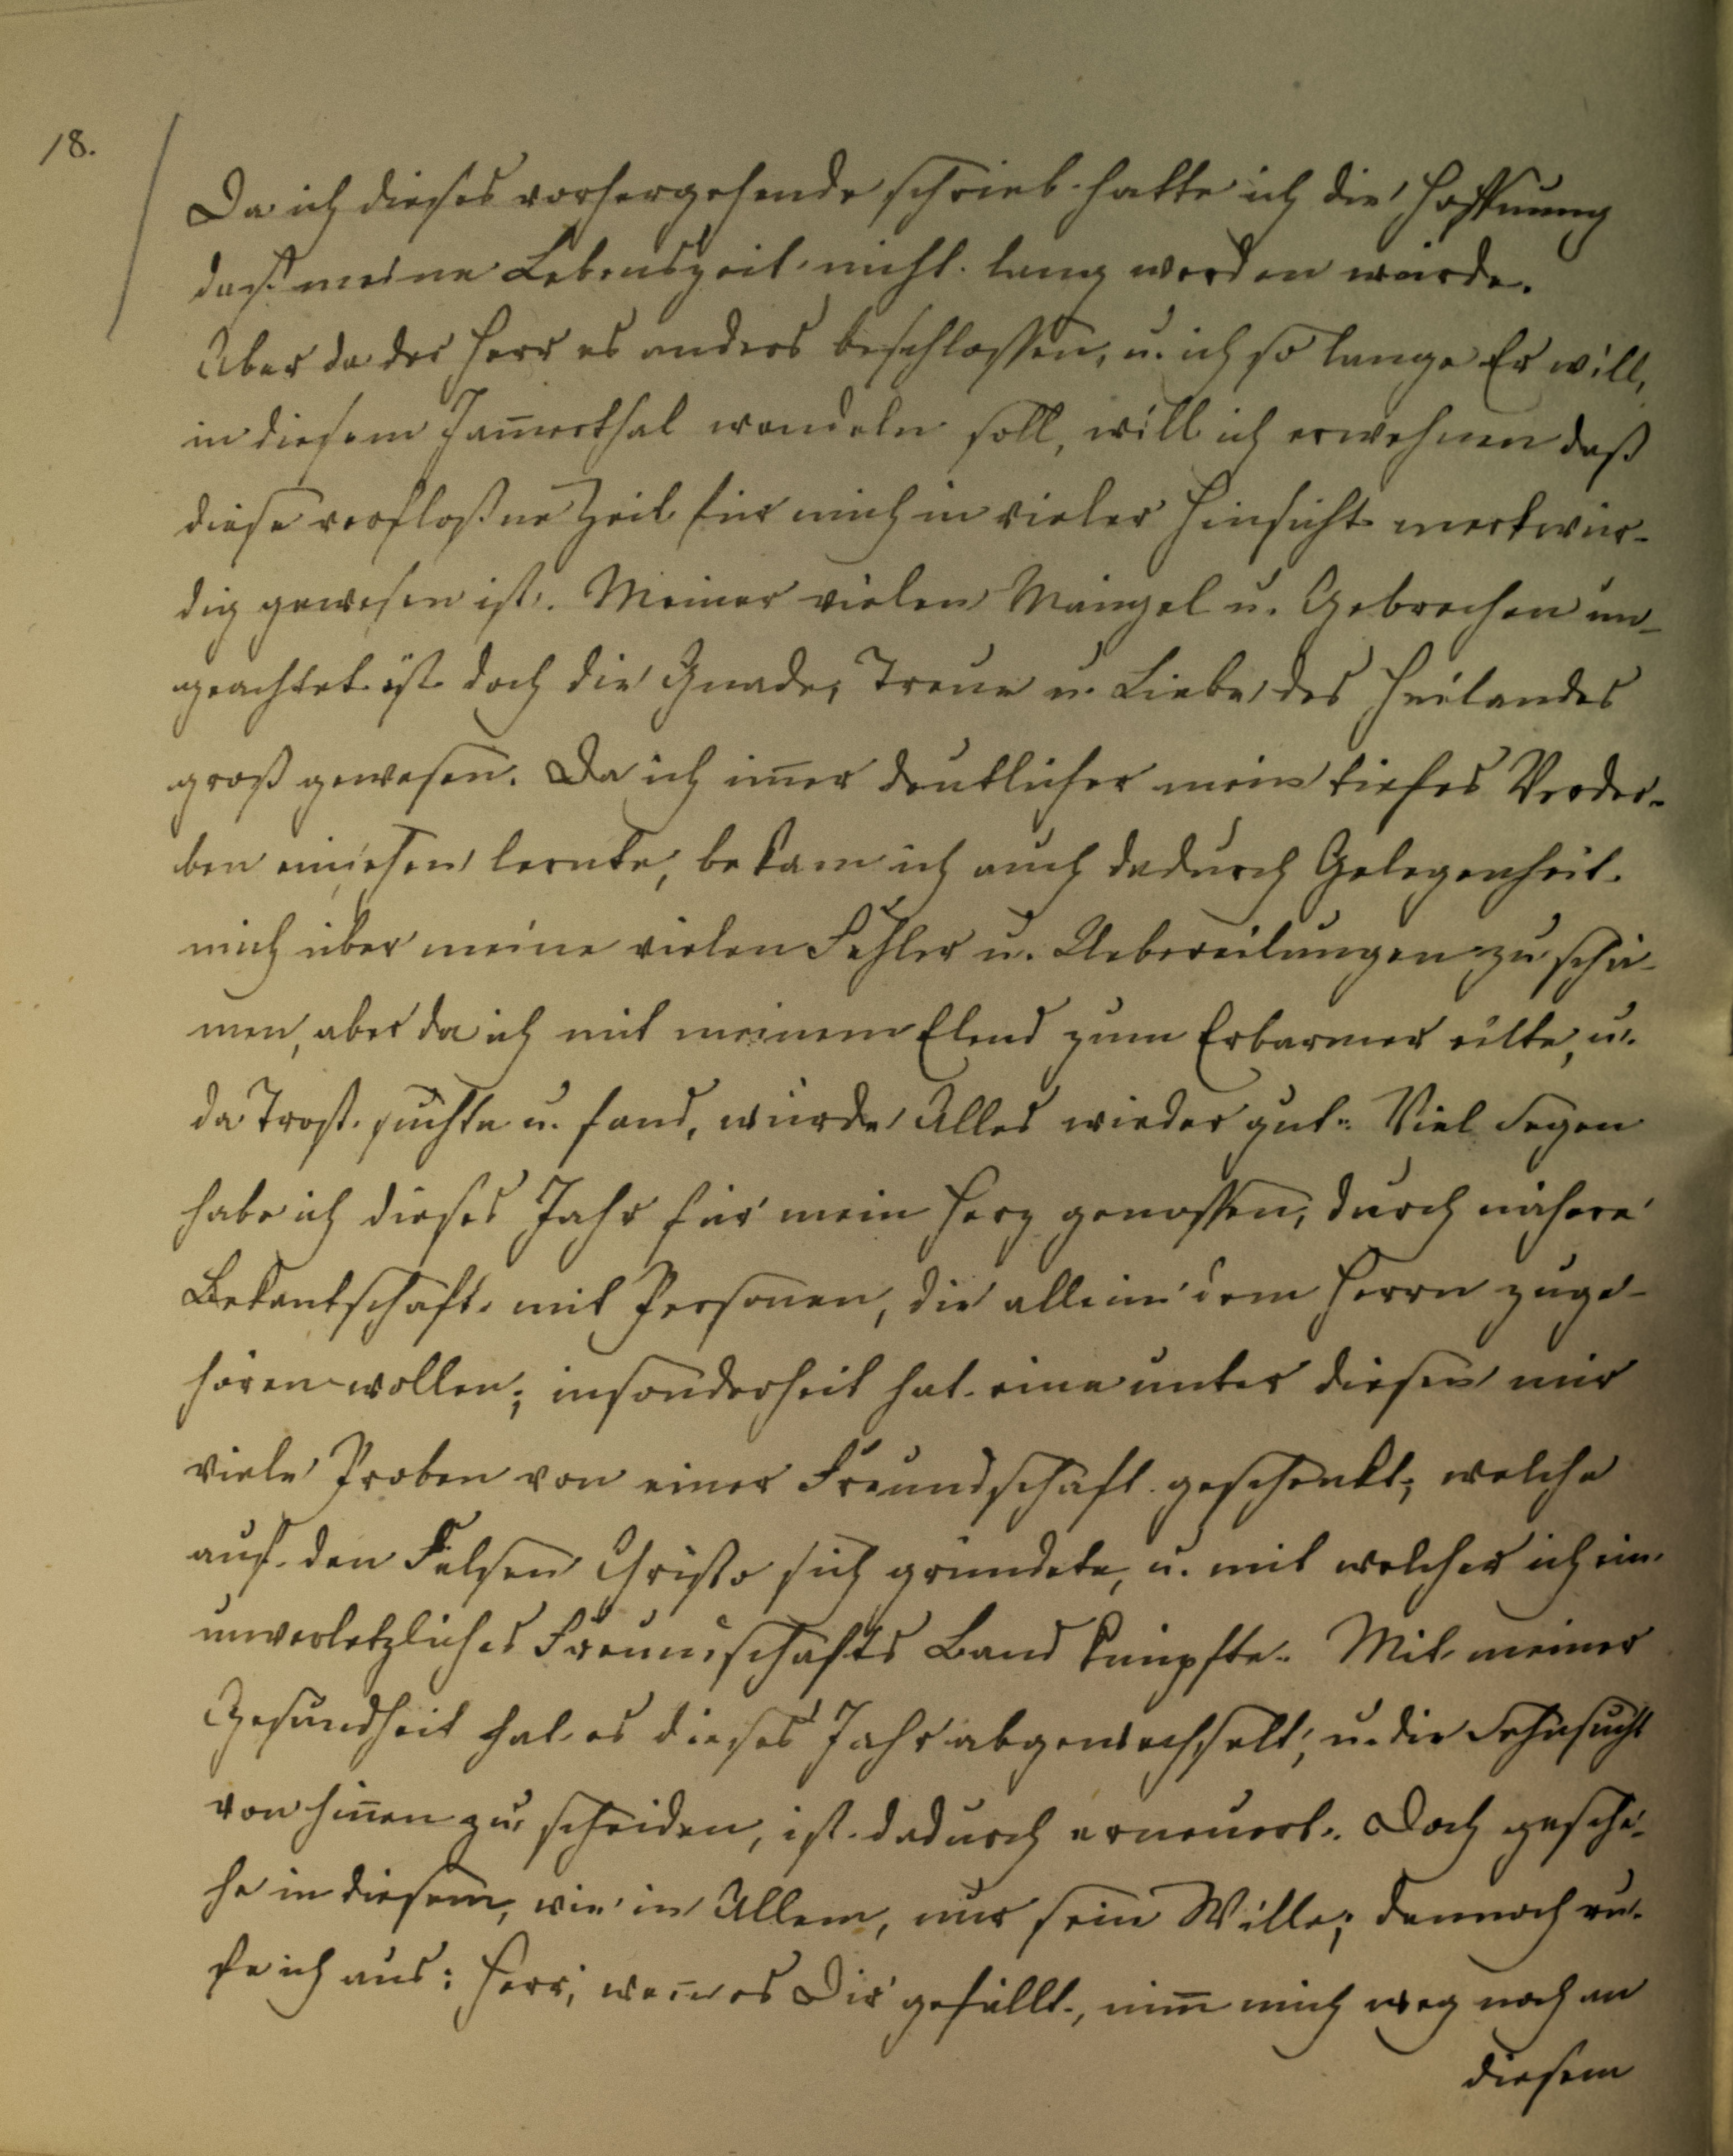 18.
Da ich dieses vorhergehende schrieb hatte ich die Hoffnung
daß meine Lebenszeit nicht lang werden würde.
Aber da der Herr es anders beschloßen, u. ich so lange Er will,
in diesem Jam̅erthal wandeln soll, will ich erwehnen daß
diese verfloßne Zeit für mich in vieler Hinsicht merkwür-
dig gewesen ist. Meiner vielen Mängel u. Gebrechen un-
geachtet ist doch die Gnade, Treue u. Liebe des Heilandes
groß gewesen. Da ich im̅er deutlicher mein tiefes Verder-
ben einsehen lernte, bekam ich auch dadurch Gelegenheit
mich über meine vielen Fehler u. Uebereilungen zu schä-
men, aber da ich mit meinem Elend zum Erbarmer eilte, u.
da Trost suchte u. fand, wurde Alles wieder gut. Viel Segen
habe ich dieses Jahr für mein Herz genoßen, durch nähere
Bekantschaft mit Personen, die allein dem Herrn zuge-
hören wollen; insonderheit hat eine unter diesen mir
viele Proben von einer Freundschaft geschenkt, welche
auf den Felsen Christo sich gründete, u. mit welcher ich ein
unverletzliches Freundschafts Band knüpfte. Mit meiner
Gesundheit hat es dieses Jahr abgewechselt, u. die Sehnsucht
von hin̅en zu scheiden, ist dadurch erneuert. Doch gesche-
he in diesem, wie in Allem, nur sein Wille; dennoch ru-
fe ich aus: Herr, wen̅ es Dir gefällt, nim̅ mich weg noch an
diesem